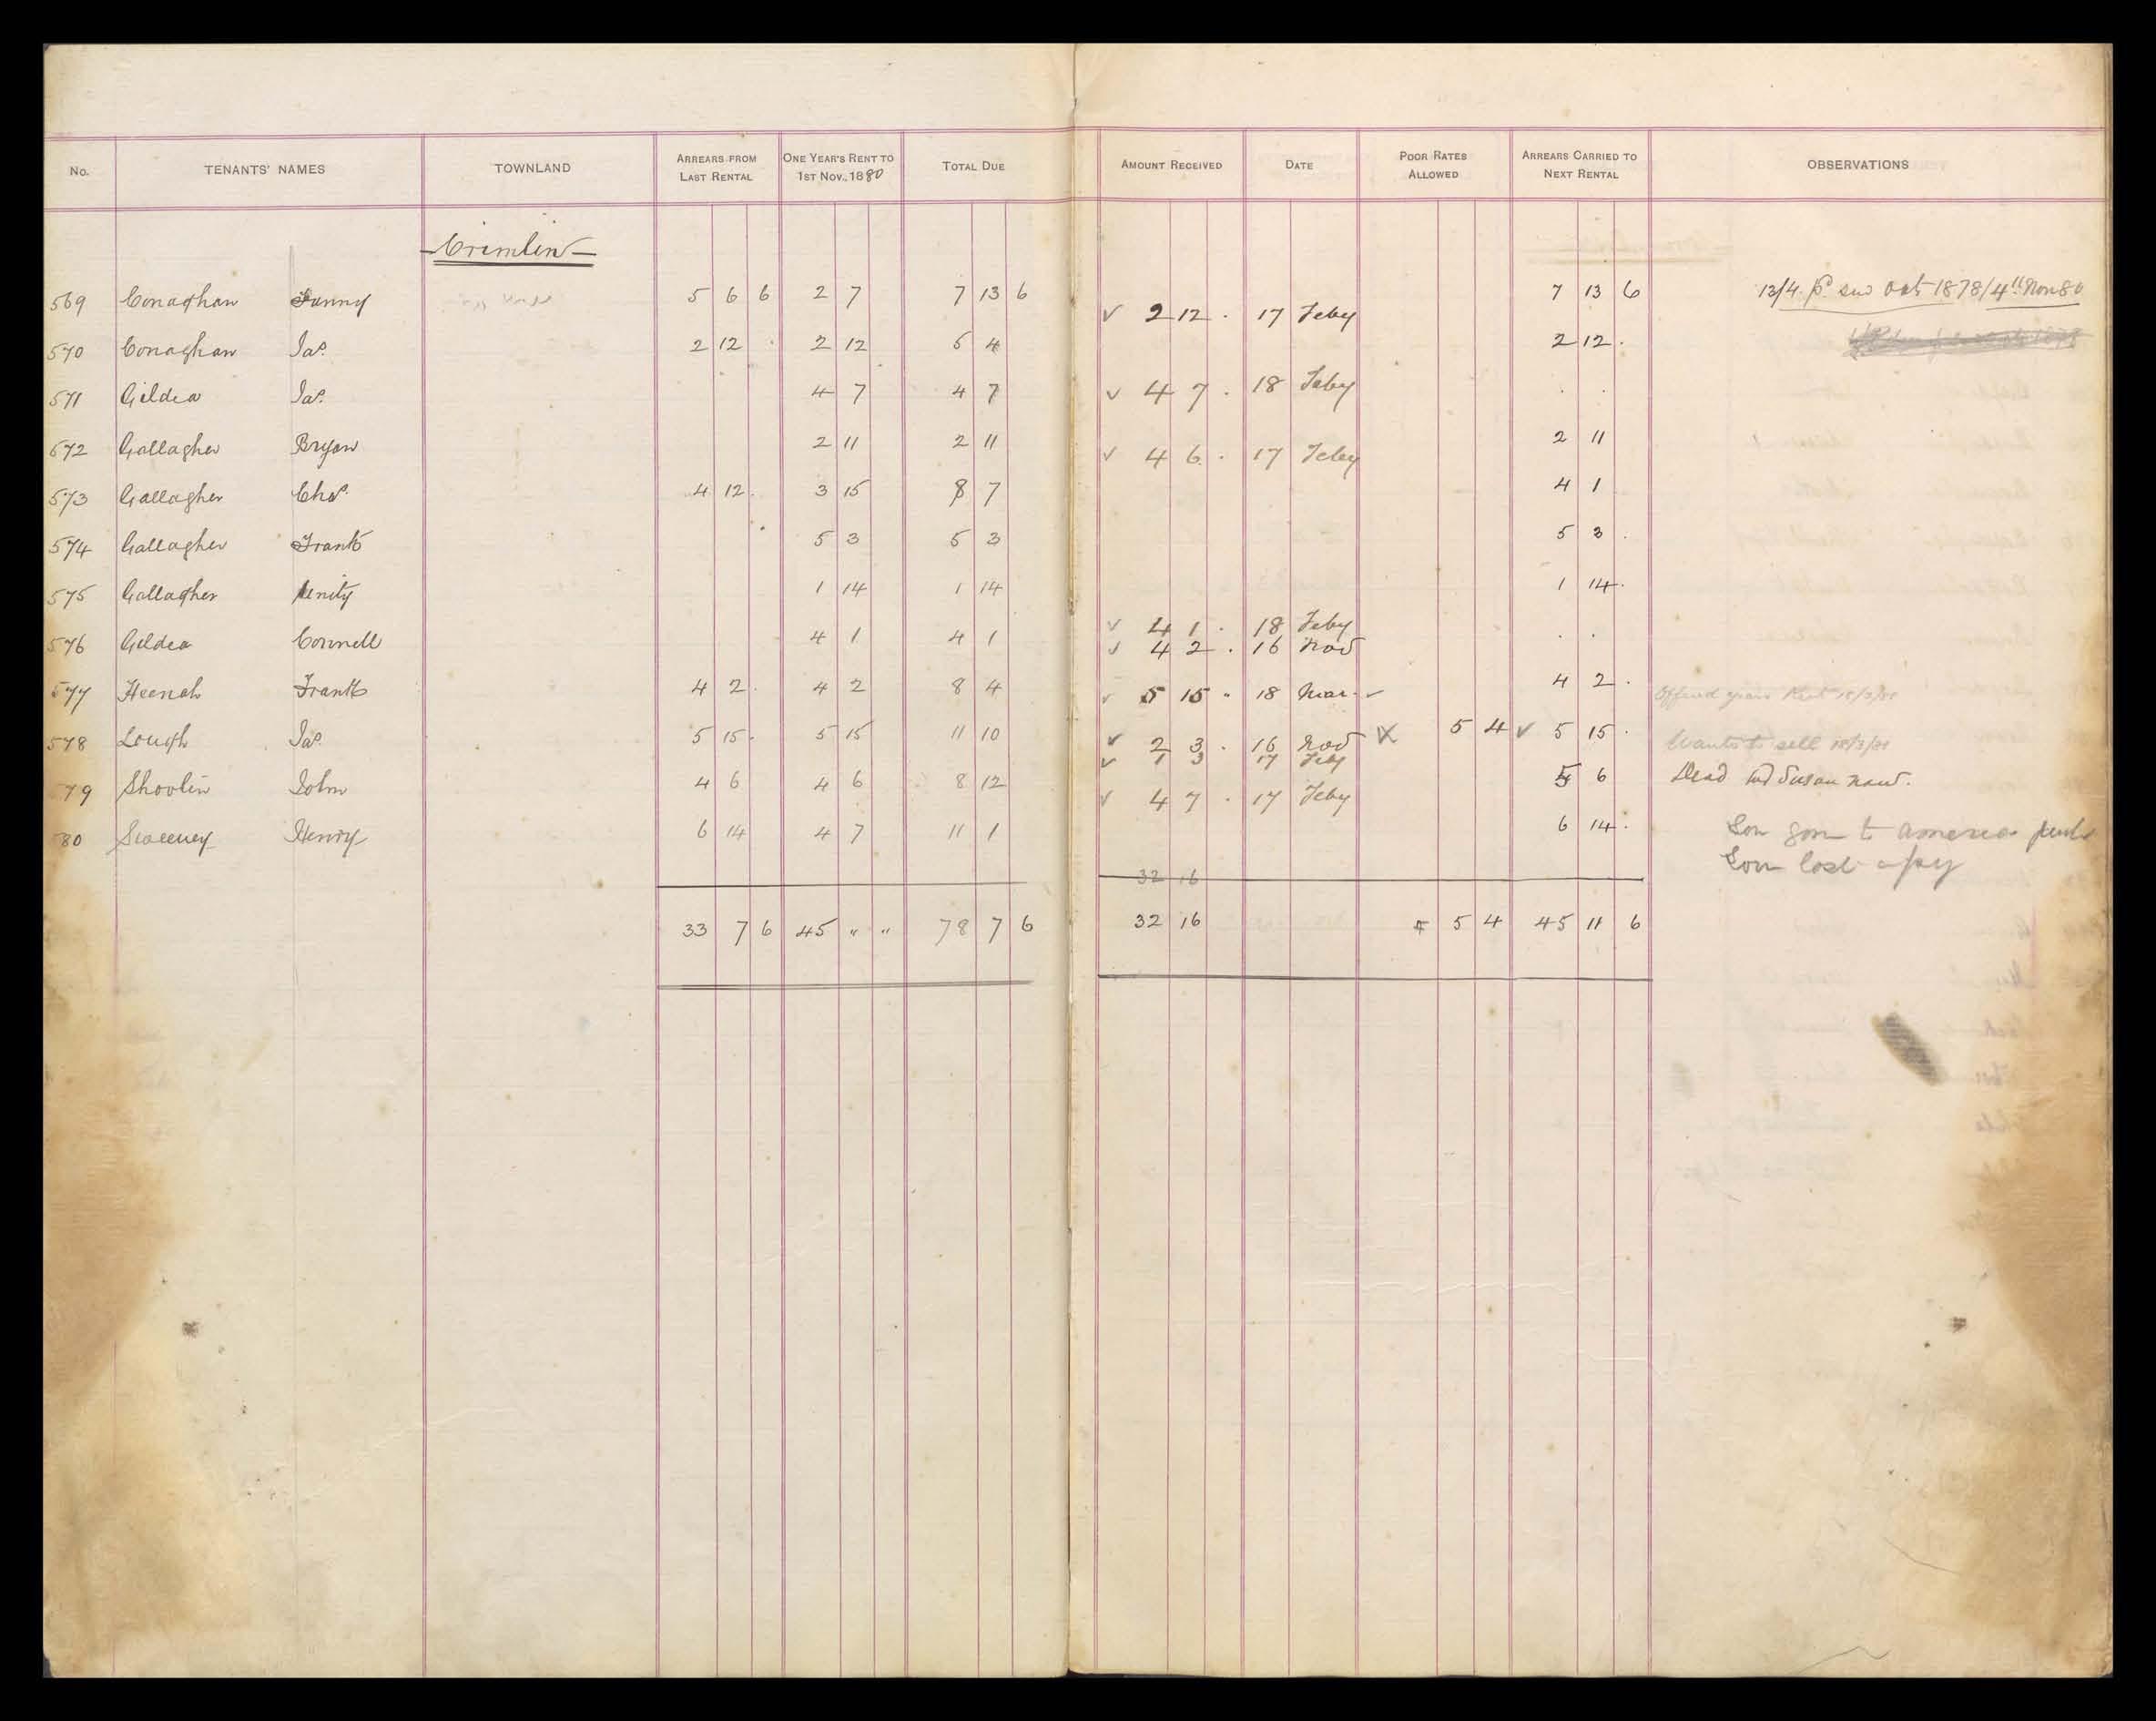 No. TENANTS' NAMES TOWNLAND ARREARS FROM LAST RENTAL ONE YEAR'S RENT TO 1ST NOV., 1880 TOTAL DUE AMOUNT RECEIVED DATE POOR RATES ALLOWED ARREARS CARRIED TO NEXT RENTAL OBSERVATIONS
Crimlin
569 Conaghan Fanny 5 6 6 2 7 7 13 6 7 13 6 13/4 pd Oct 1878/4th Nov 80
570 Conaghan Jas. 2 12 . 2 12 5 4 ✓ 2 12 . 17 Feby 2 12 .
571 Gildea Jas. 4 7 4 7 ✓ 4 7 . 18 Feby . .
572 Gallagher Bryan 2 11 2 11 2 11
573 Gallagher Chas. 4 12 . 3 15 8 7 ✓ 4 6 . 17 Feby 4 1
574 Gallagher Frank 5 3 5 3 5 3 .
575 Gallagher Unity 1 14 1 14 1 14 .
576 Gildea Connell 4 1 4 1 ✓ 4 1 . 18 Feby . .
577 Heenah Frank 4 2 . 4 2 8 4 ✓ 4 2 . 16 Nov 4 2 . Offered years Rent 18/3/81
578 Lough Jas. 5 15 . 5 15 11 10 ✓ 5 15 " 18 Mar. ✓ 5 15 . Wants to sell 18/3/81
79 Shovlin John 4 6 4 6 8 12 ✓ 2 3 . 16 Nov X 5 4 ✓ 5 6 Dead Wd Susan now.
✓ 1 3 17 Feby
80 Sweeney Henry 6 14 4 7 11 1 ✓ 4 7 . 17 Feby 6 14 . Son gone to America
Son lost
32 16
33 7 6 45 " " 78 7 6 32 16 5 4 45 11 6